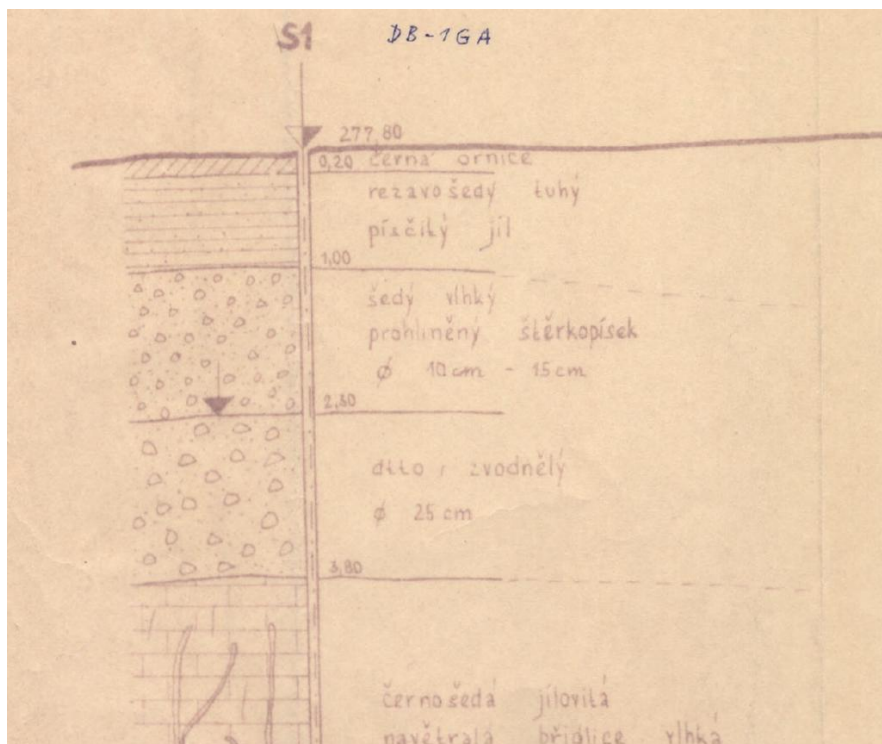 S1
DB-1GA
277,80
0,20 černá ornice
rezavošedý tuhý
písčitý jíl
1,00
šedý vlhký
prohliněný štěrkopísek
ø 10 cm - 15 cm
2,30
dtto, zvodnělý
ø 25 cm
3,80
černošedá jílovitá
navětralá břidlice vlhká